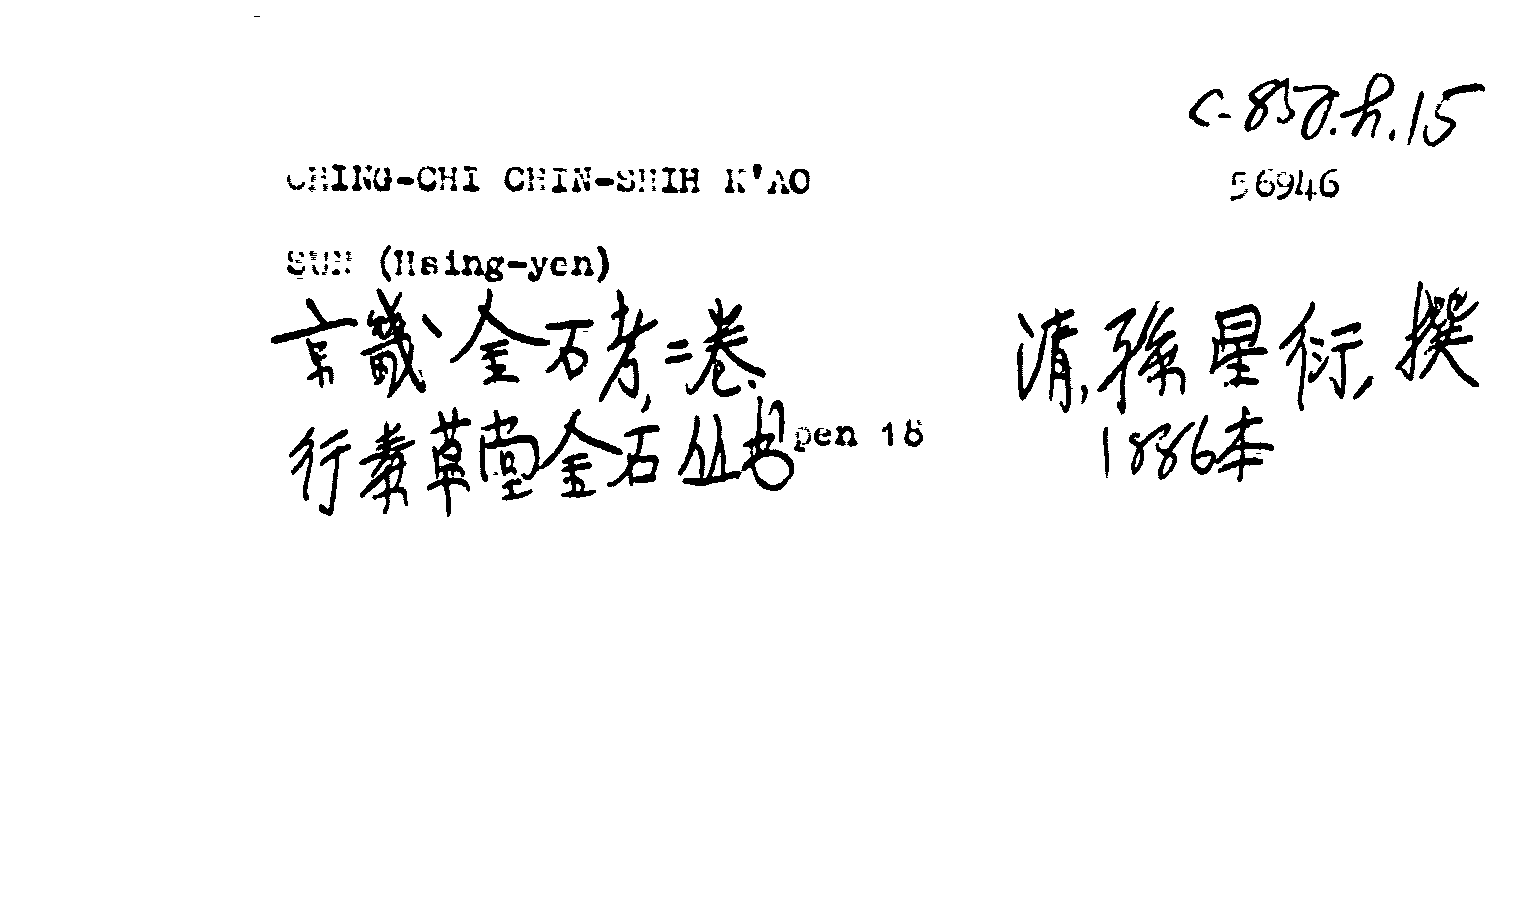 C-857.h.15
CHING-CHI CHIN-SHIH K'AO
56946
SUN (Hsing-yen)
京畿金石考,二卷. 清,孫星衍,撰
行素草堂金石丛书 pen 18 1886本